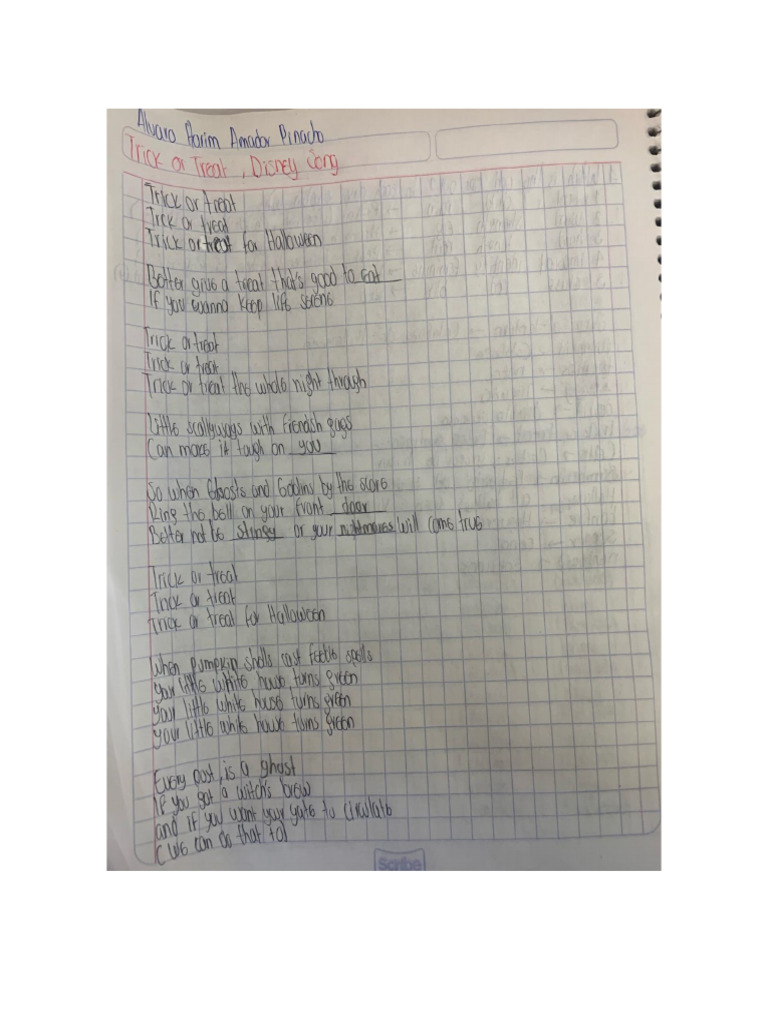 Alvaro Harim Amador Pinacho
Trick or Treat, Disney Song
Trick or treat
Trick or treat
Trick or treat for Halloween
Better give a treat that's good to eat
If you wanna keep life serene
Trick or treat
Trick or treat
Trick or treat the whole night through
Little scallyways with fiendish gags
Can make it tough on you
So when Ghosts and Goblins by the score
Ring the bell on your front door
Better not be stingy or your nightmares will come true
Trick or treat
Trick or treat
Trick or treat for Halloween
When pumpkin shells cast spells
Your little white house turns green
Your little white house turns green
Your little white house turns green
Every post, is a ghost
If you got a witch's brew
and if you want your gate to circulate
(We can do that to)
Scribe